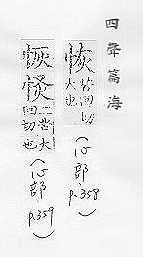 四聲篇海
苦回切
大也
(心部 p.358)
二苦大
回切也
(心部 p.359)